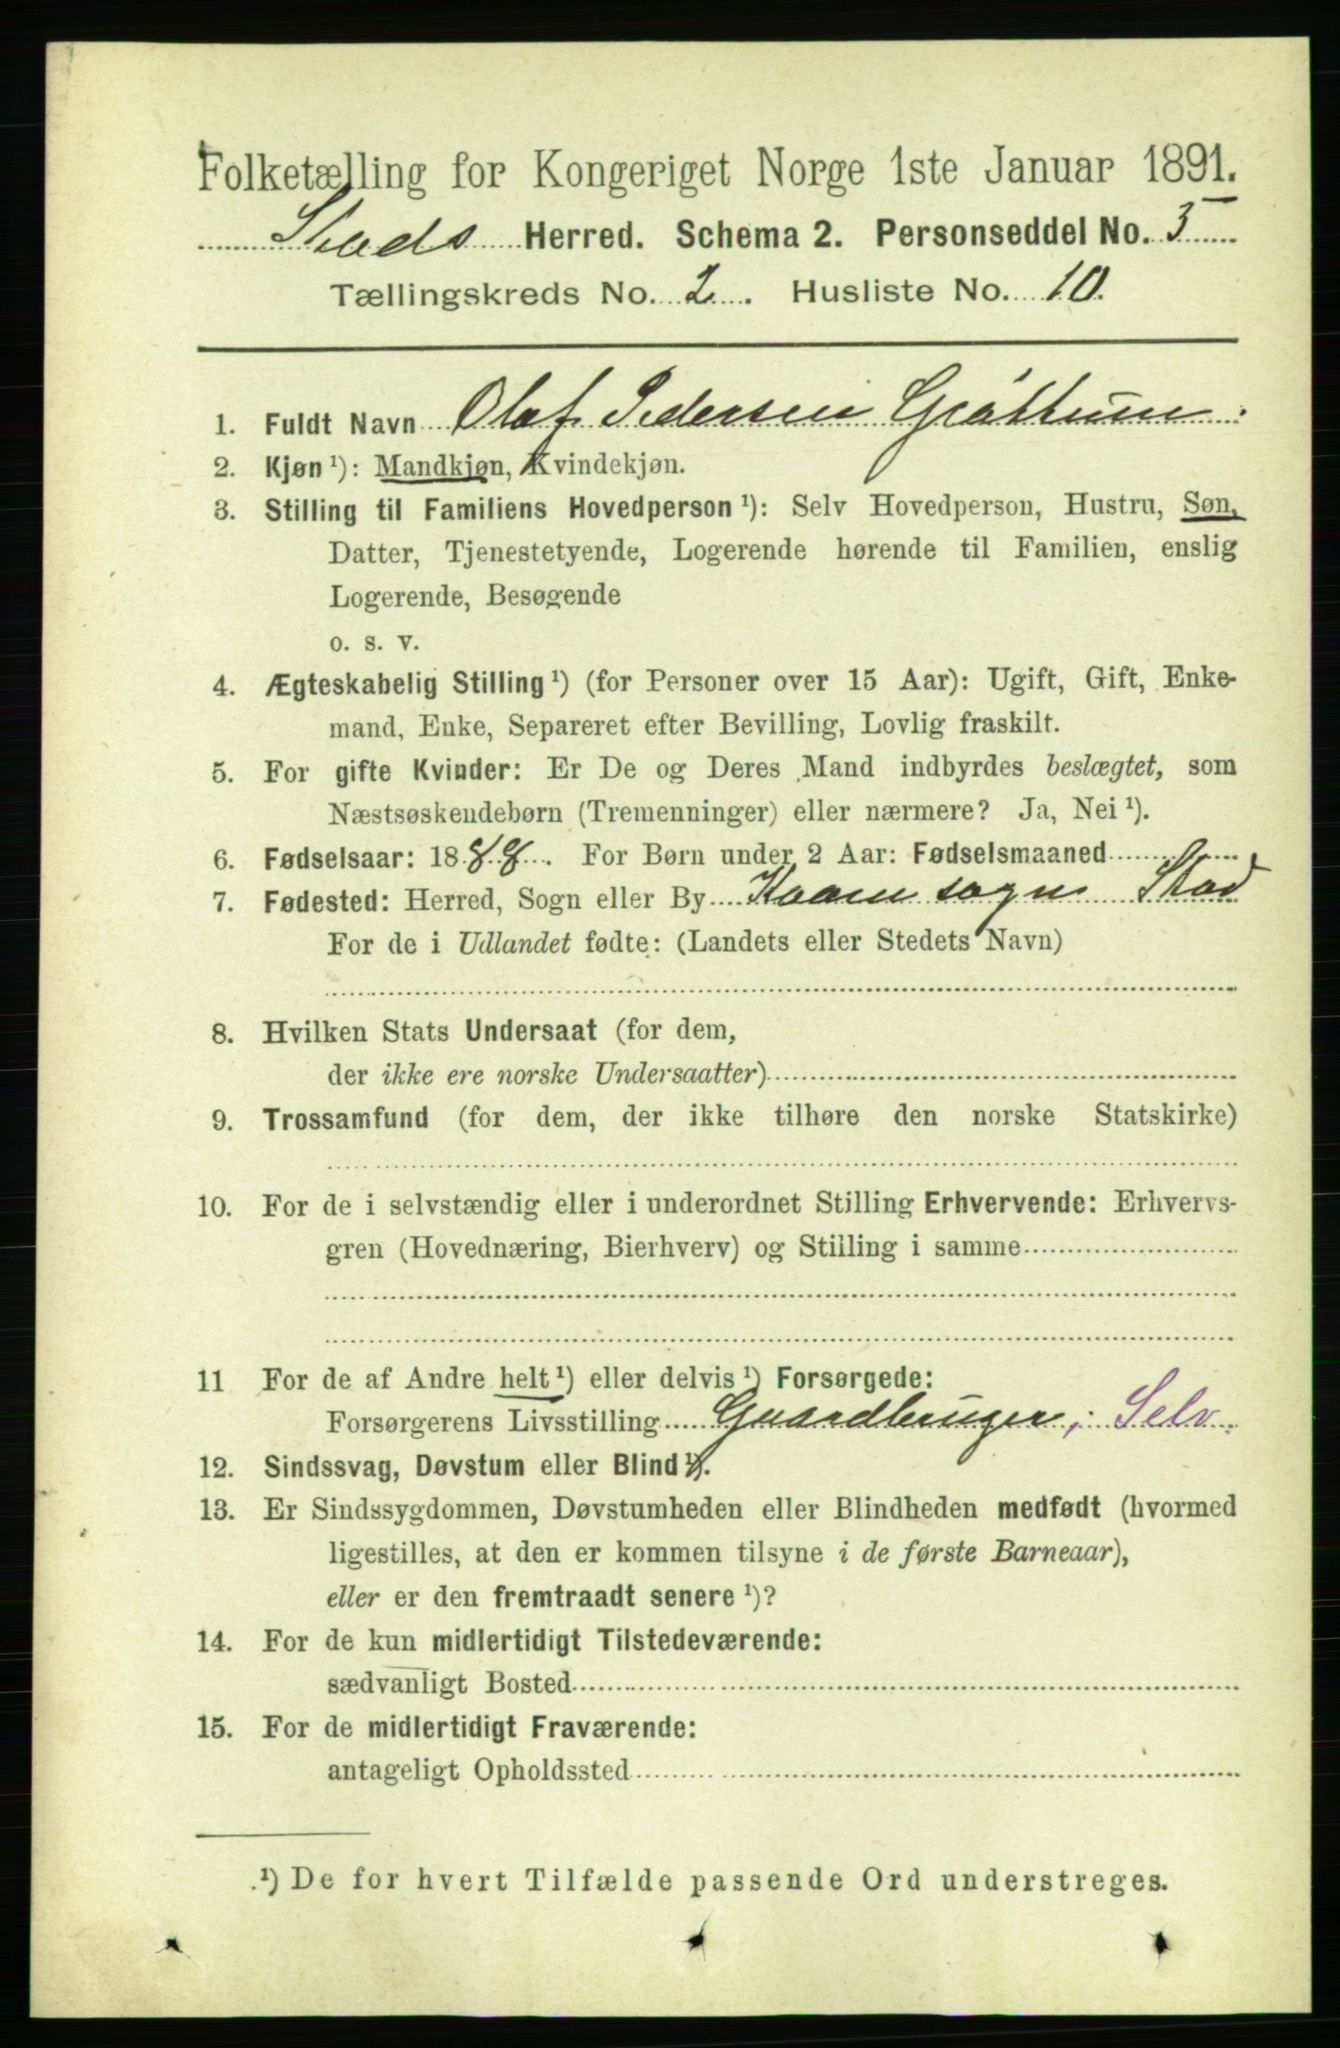 Folketælling for Kongeriget Norge 1ste Januar 1891.
Stods Herred. Schema 2. Personseddel No. 5
Tællingskreds No. 2. Husliste No. 10.
1. Fuldt Navn Olaf Pedersen Grøttum.
2. Kjøn ¹): Mandkjøn, Kvindekjøn.
3. Stilling til Familiens Hovedperson ¹): Selv Hovedperson, Hustru, Søn,
Datter, Tjenestetyende, Logerende hørende til Familien, enslig
Logerende, Besøgende
o. s. v.
4. Ægteskabelig Stilling ¹) (for Personer over 15 Aar): Ugift, Gift, Enke-
mand, Enke, Separeret efter Bevilling, Lovlig fraskilt.
5. For gifte Kvinder: Er De og Deres Mand indbyrdes beslægtet, som
Næstsøskendebørn (Tremenninger) eller nærmere? Ja, Nei ¹).
6. Fødselsaar: 1888. For Børn under 2 Aar: Fødselsmaaned
7. Fødested: Herred, Sogn eller By Kvam sogn Stod
For de i Udlandet fødte: (Landets eller Stedets Navn)
8. Hvilken Stats Undersaat (for dem,
der ikke ere norske Undersaatter)
9. Trossamfund (for dem, der ikke tilhøre den norske Statskirke)
10. For de i selvstændig eller i underordnet Stilling Erhvervende: Erhvervs-
gren (Hovednæring, Bierhverv) og Stilling i samme
11 For de af Andre helt ¹) eller delvis ¹) Forsørgede:
Forsørgerens Livsstilling Gaardbruger, Selv.
12. Sindssvag, Døvstum eller Blind ¹).
13. Er Sindssygdommen, Døvstumheden eller Blindheden medfødt (hvormed
ligestilles, at den er kommen tilsyne i de første Barneaar),
eller er den fremtraadt senere ¹)?
14. For de kun midlertidigt Tilstedeværende:
sædvanligt Bosted
15. For de midlertidigt Fraværende:
antageligt Opholdssted
¹) De for hvert Tilfælde passende Ord understreges.